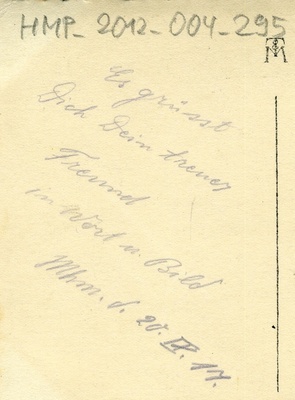 HMP-2012-004-295
Es grüsst
Dich Dein treuer
Freund
in Wort u. Bild
Mhm. d. 20. IX. 17.